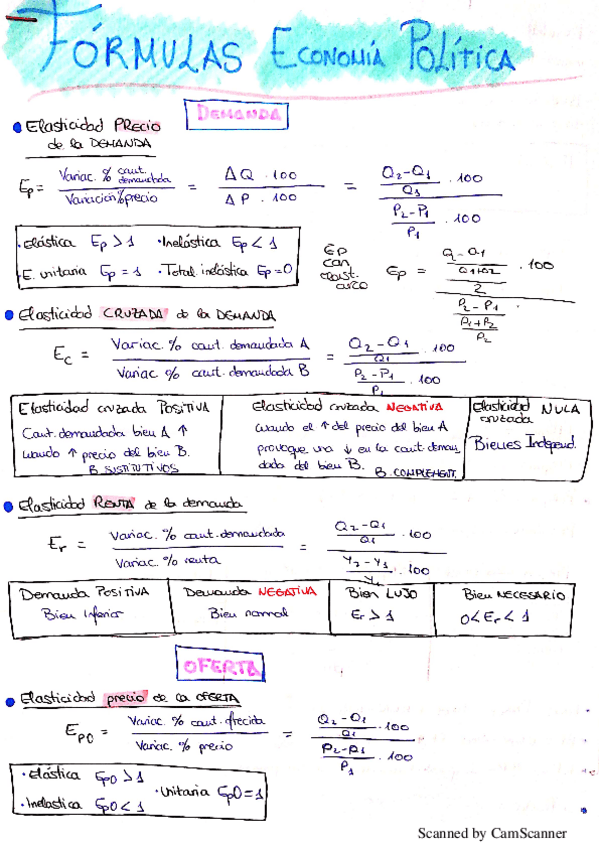 FÓRMULAS ECONOMÍA POLÍTICA
DEMANDA
• Elasticidad PRECIO
de la DEMANDA
Ep = Variac. % cant. demandada / Variación % precio = ΔQ . 100 / ΔP . 100 = Q2-Q1 / Q1 . 100 / P2-P1 / P1 . 100
· Elástica Ep > 1 · Inelástica Ep < 1
· E. unitaria Ep = 1 · Total. inelástica Ep = 0
EP
con
arco
Ep = Q-Q1 / Q1+Q2 / 2 . 100 / P2-P1 / P1+P2 / P2
• Elasticidad CRUZADA de la DEMANDA
Ec = Variac. % cant. demandada A / Variac. % cant. demandada B = Q2-Q1 / Q1 . 100 / P2-P1 / P1 . 100
Elasticidad cruzada POSITIVA
Cant. demandada bien A ↑
cuando ↑ precio del bien B.
B. SUSTITUTIVOS
Elasticidad cruzada NEGATIVA
cuando el ↑ del precio del bien A
provoque una ↓ en la cant. deman
dada del bien B.
B. COMPLEMENT.
Elasticidad NULA
cruzada
Bienes Independ.
• Elasticidad RENTA de la demanda
Er = Variac. % cant. demandada / Variac. % renta = Q2-Q1 / Q1 . 100 / Y2-Y1 / Y1 . 100
Demanda POSITIVA
Bien Inferior
Demanda NEGATIVA
Bien normal
Bien LUJO
Er > 1
Bien NECESARIO
0 < Er < 1
OFERTA
• Elasticidad precio de la OFERTA
EPO = Variac. % cant. ofrecida / Variac. % precio = Q2-Q1 / Q1 . 100 / P2-P1 / P1 . 100
· Elástica EPO > 1
· Unitaria EPO = 1
· Inelastica EPO < 1
Scanned by CamScanner